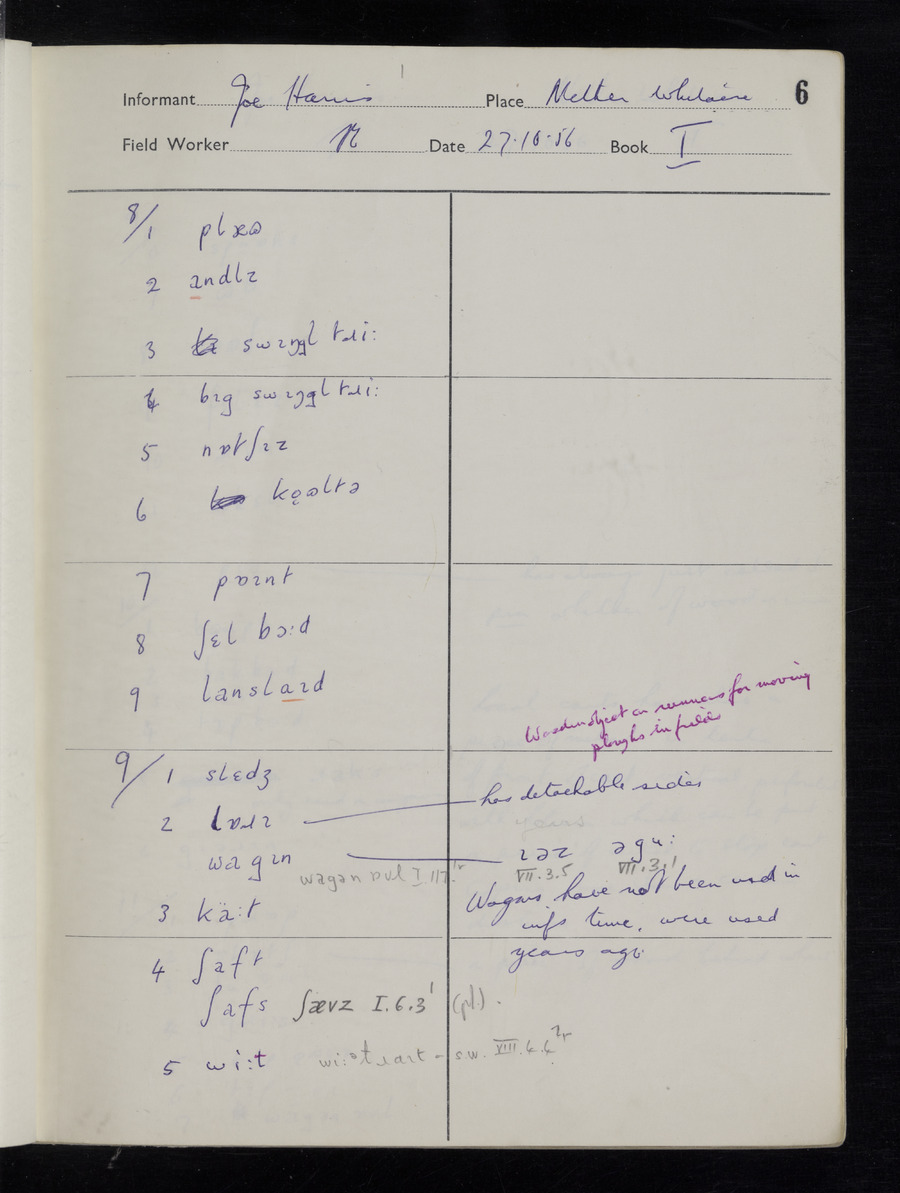 Informant Joe Harris Place Nether Whitacre 6
Field Worker Date 27.10.56 Book I
8/1 plæɷ
2 andlz
3 swɪŋgl tɹi:
4 bɪg swɪŋgl tɹi:
5 nɒtʃɪz
6 kǫɷltə
7 pɒɪnt
8 ʃɛl bɔ:d
9 lanslaɪd
Wooden object on runners for moving
ploughs in field
9/1 slɛdʒ
2 lɒɹɪ has detachable sides
wagɪn ɪəz əgu:
wagən I.117. VII.3.5 VII.3.1
Wagons have not been used in
inf's time, were used
years ago.
3 kä:t
4 ʃaft
ʃafs ʃævz I.6.3 (pl.).
5 wi:t s.w. VIII.6.6